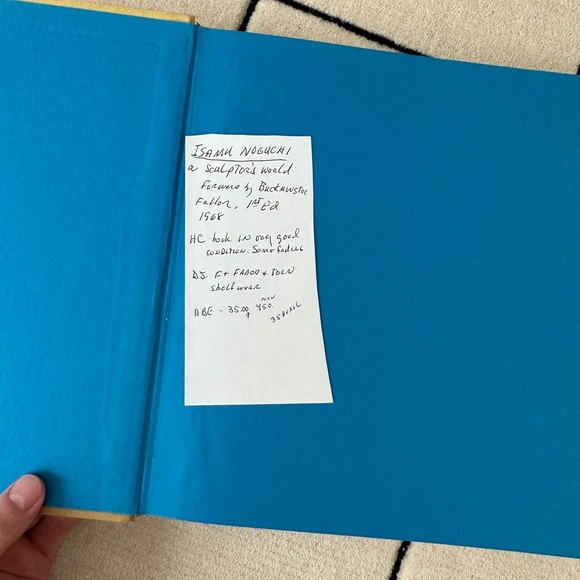 ISAMU NOGUCHI
a sculptor's world
Forward by Buckminster
Fuller, 1st Ed
1968
HC book in very good
condition. Some fading
DJ. F+ FADED + TORN
shelf wear
ABE - 35.00 450.